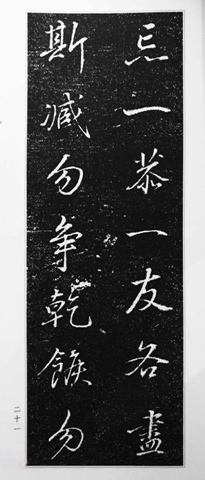 忌一恭一友各盡
斯減勿爭乾餱勿
二十一